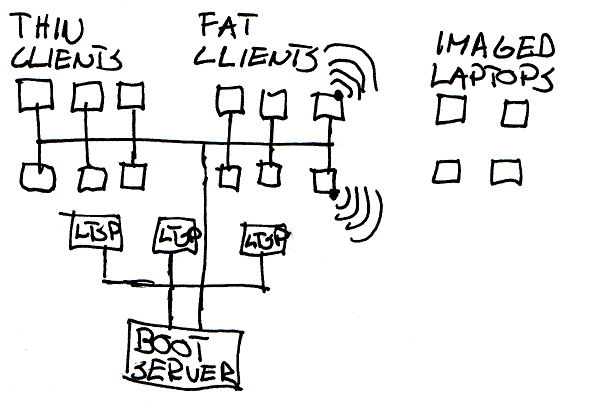 THIN
CLIENTS
FAT
CLIENTS
IMAGED
LAPTOPS
LTSP
LTSP
LTSP
BOOT
SERVER